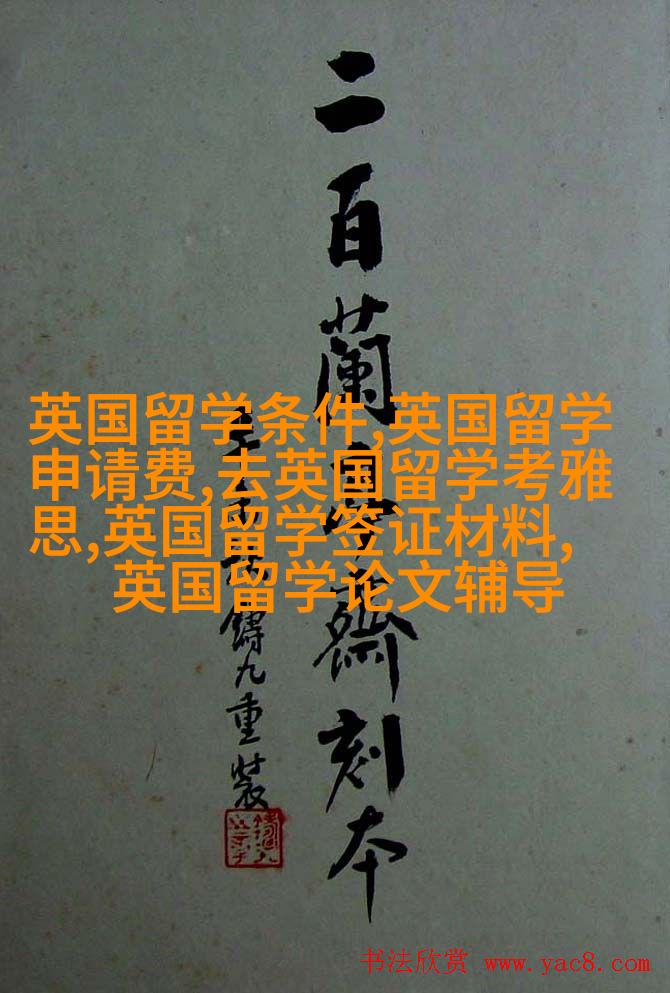 二百蘭亭齋刻本
鑄九重裝
英国留学条件,英国留学
申请费,去英国留学考雅
思,英国留学签证材料,
英国留学论文辅导
书法欣赏 www.yac8.com